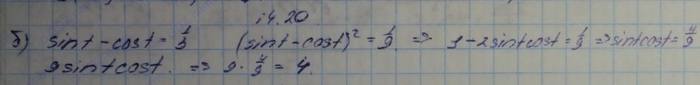 14.20
б) sint - cost = 1/3 (sint - cost)² = 1/9 ⇒ 1 - 2sintcost = 1/9 ⇒ sintcost = 4/9
9sintcost. ⇒ 9 · 4/9 = 4.